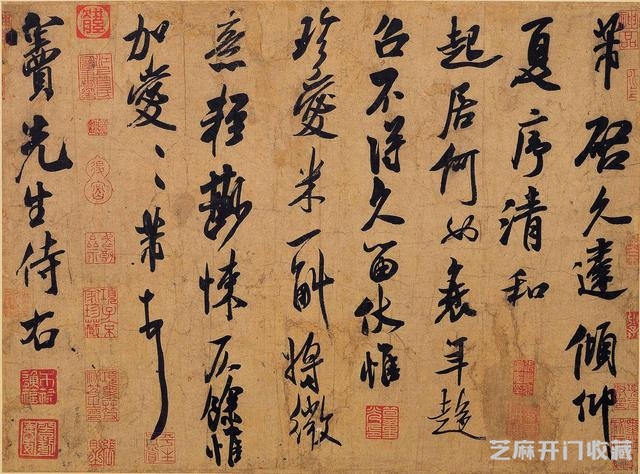 芾啟久違傾仰
夏序清和
起居何如衰年趨
召不得久留伏惟
珍愛米一斛將微
意輕尠悚仄餘惟
加愛〻芾頓首
竇先生侍右
芝麻开门收藏